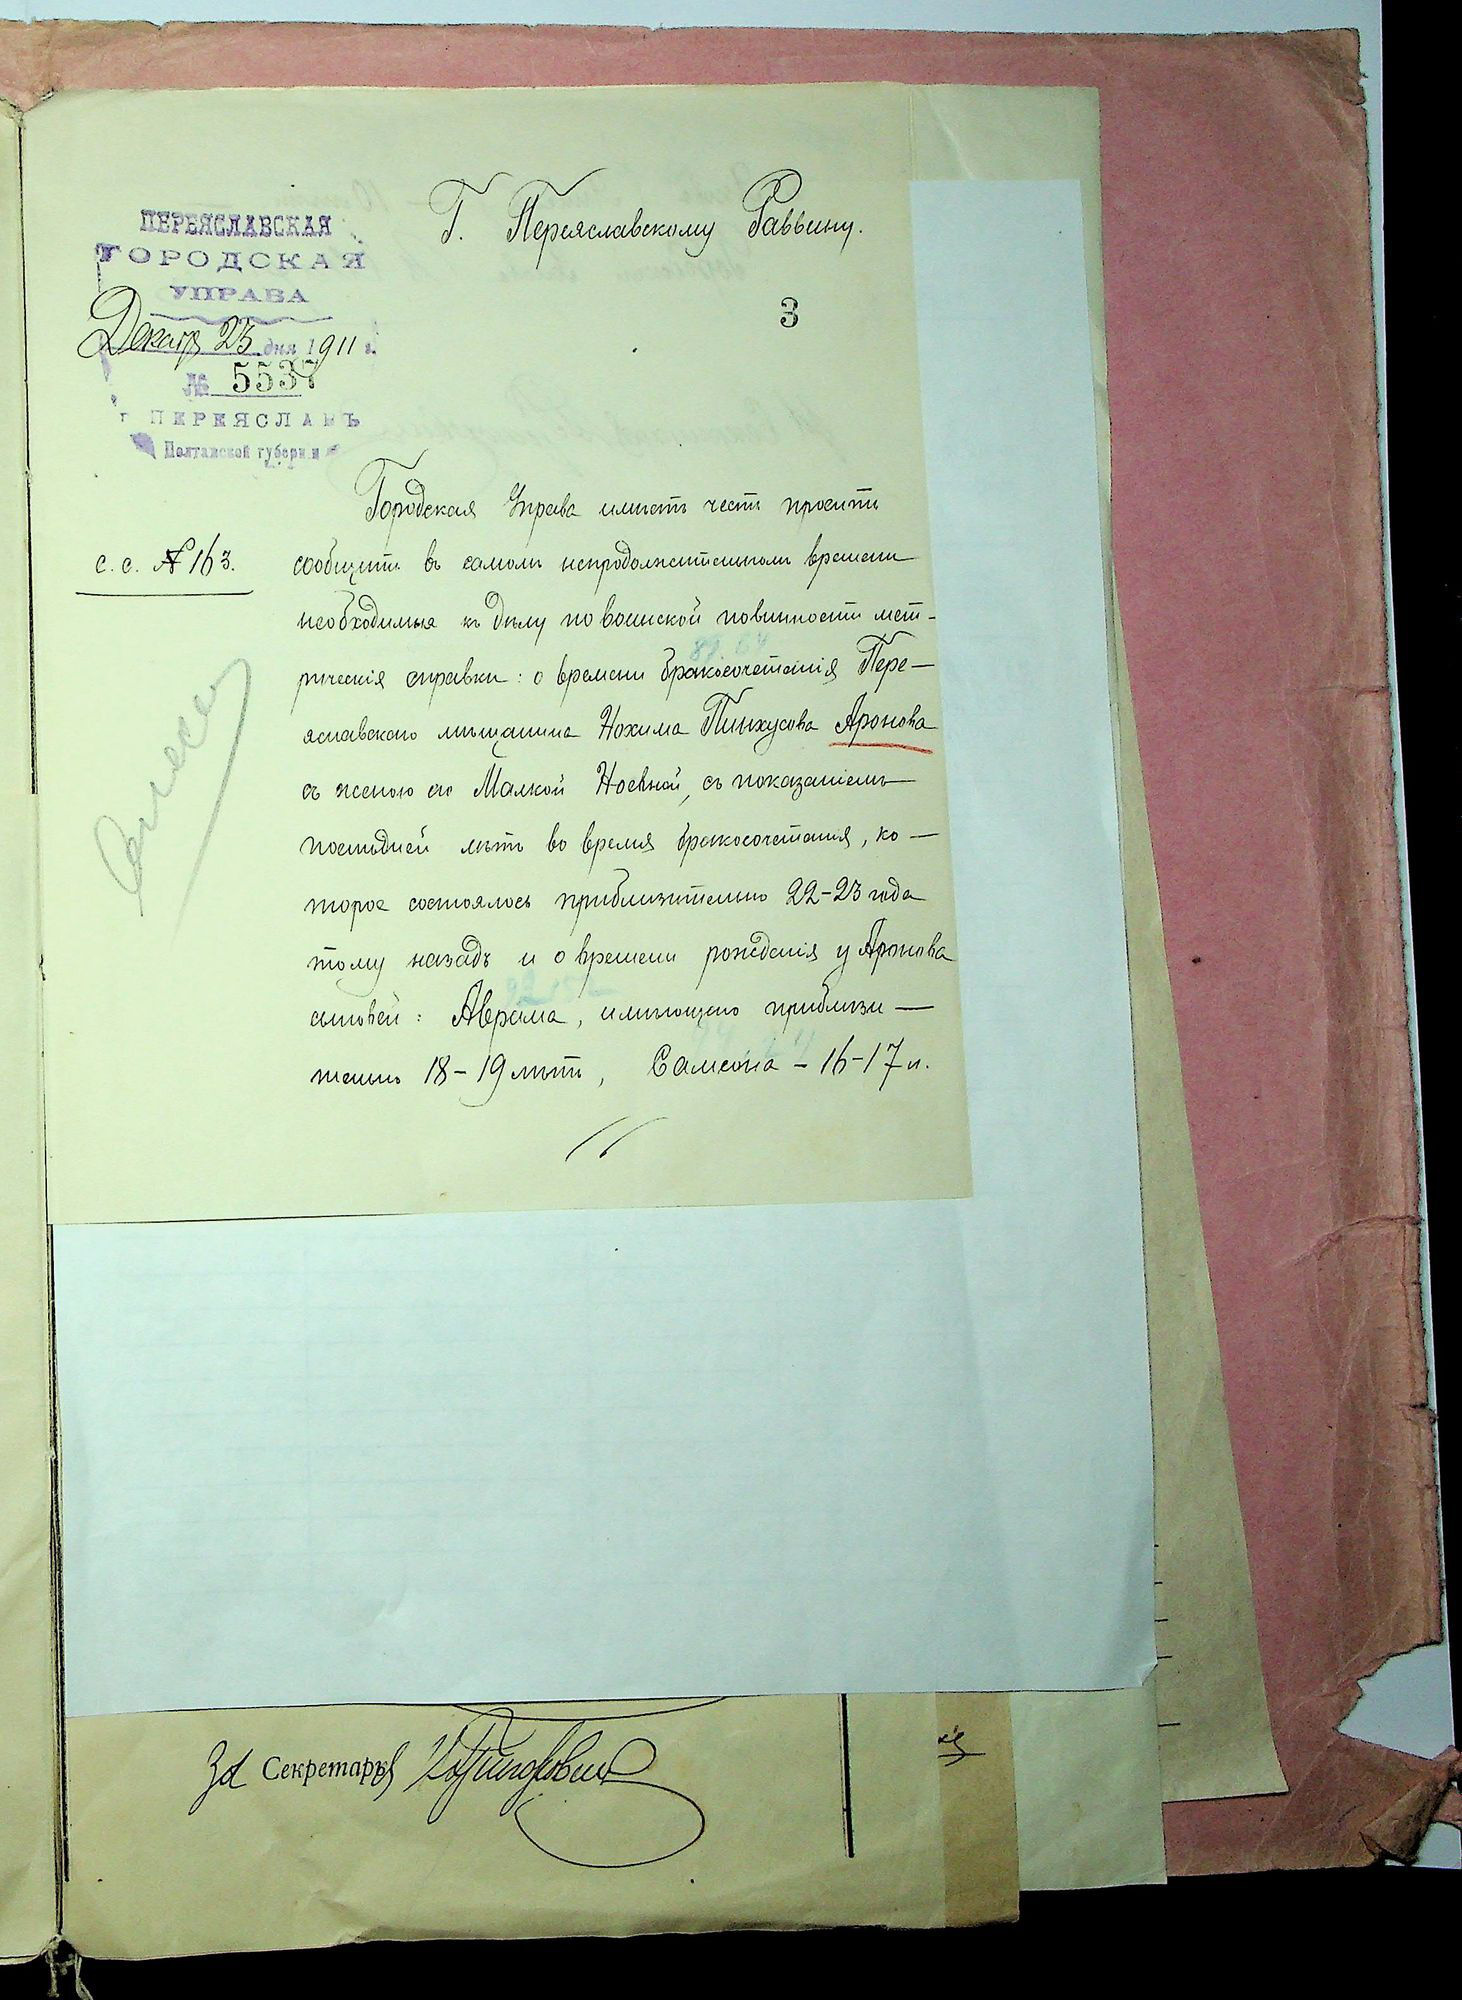 Г. Переяславскому Раввину.
ПЕРЕЯСЛАВСКАЯ
ГОРОДСКАЯ
УПРАВА
Декабр 23 дня 1911 г.
№ 5537
г. ПЕРЕЯСЛАВЪ
Полтавской губернiи
3
с. с. № 163.
Городская Управа имѣетъ честь просить
сообщить въ самомъ непродолжительномъ времени
необходимыя къ дѣлу по воинской повинности мет-
рическiя справки: о времени бракосочетанiя Пере-
яславского мѣщанина Нохима Пинхусова Аронова
съ женою его Малкой Ноевной, съ показанiемъ
послѣдней лѣтъ во время бракосочетанiя, ко-
торое состоялось приблизительно 22-23 года
тому назадъ и о времени рожденiя у Аронова
сыновей: Аврама, имѣющаго приблизи-
тельно 18-19 лѣтъ, Самсона - 16-17 л.
За Секретаря